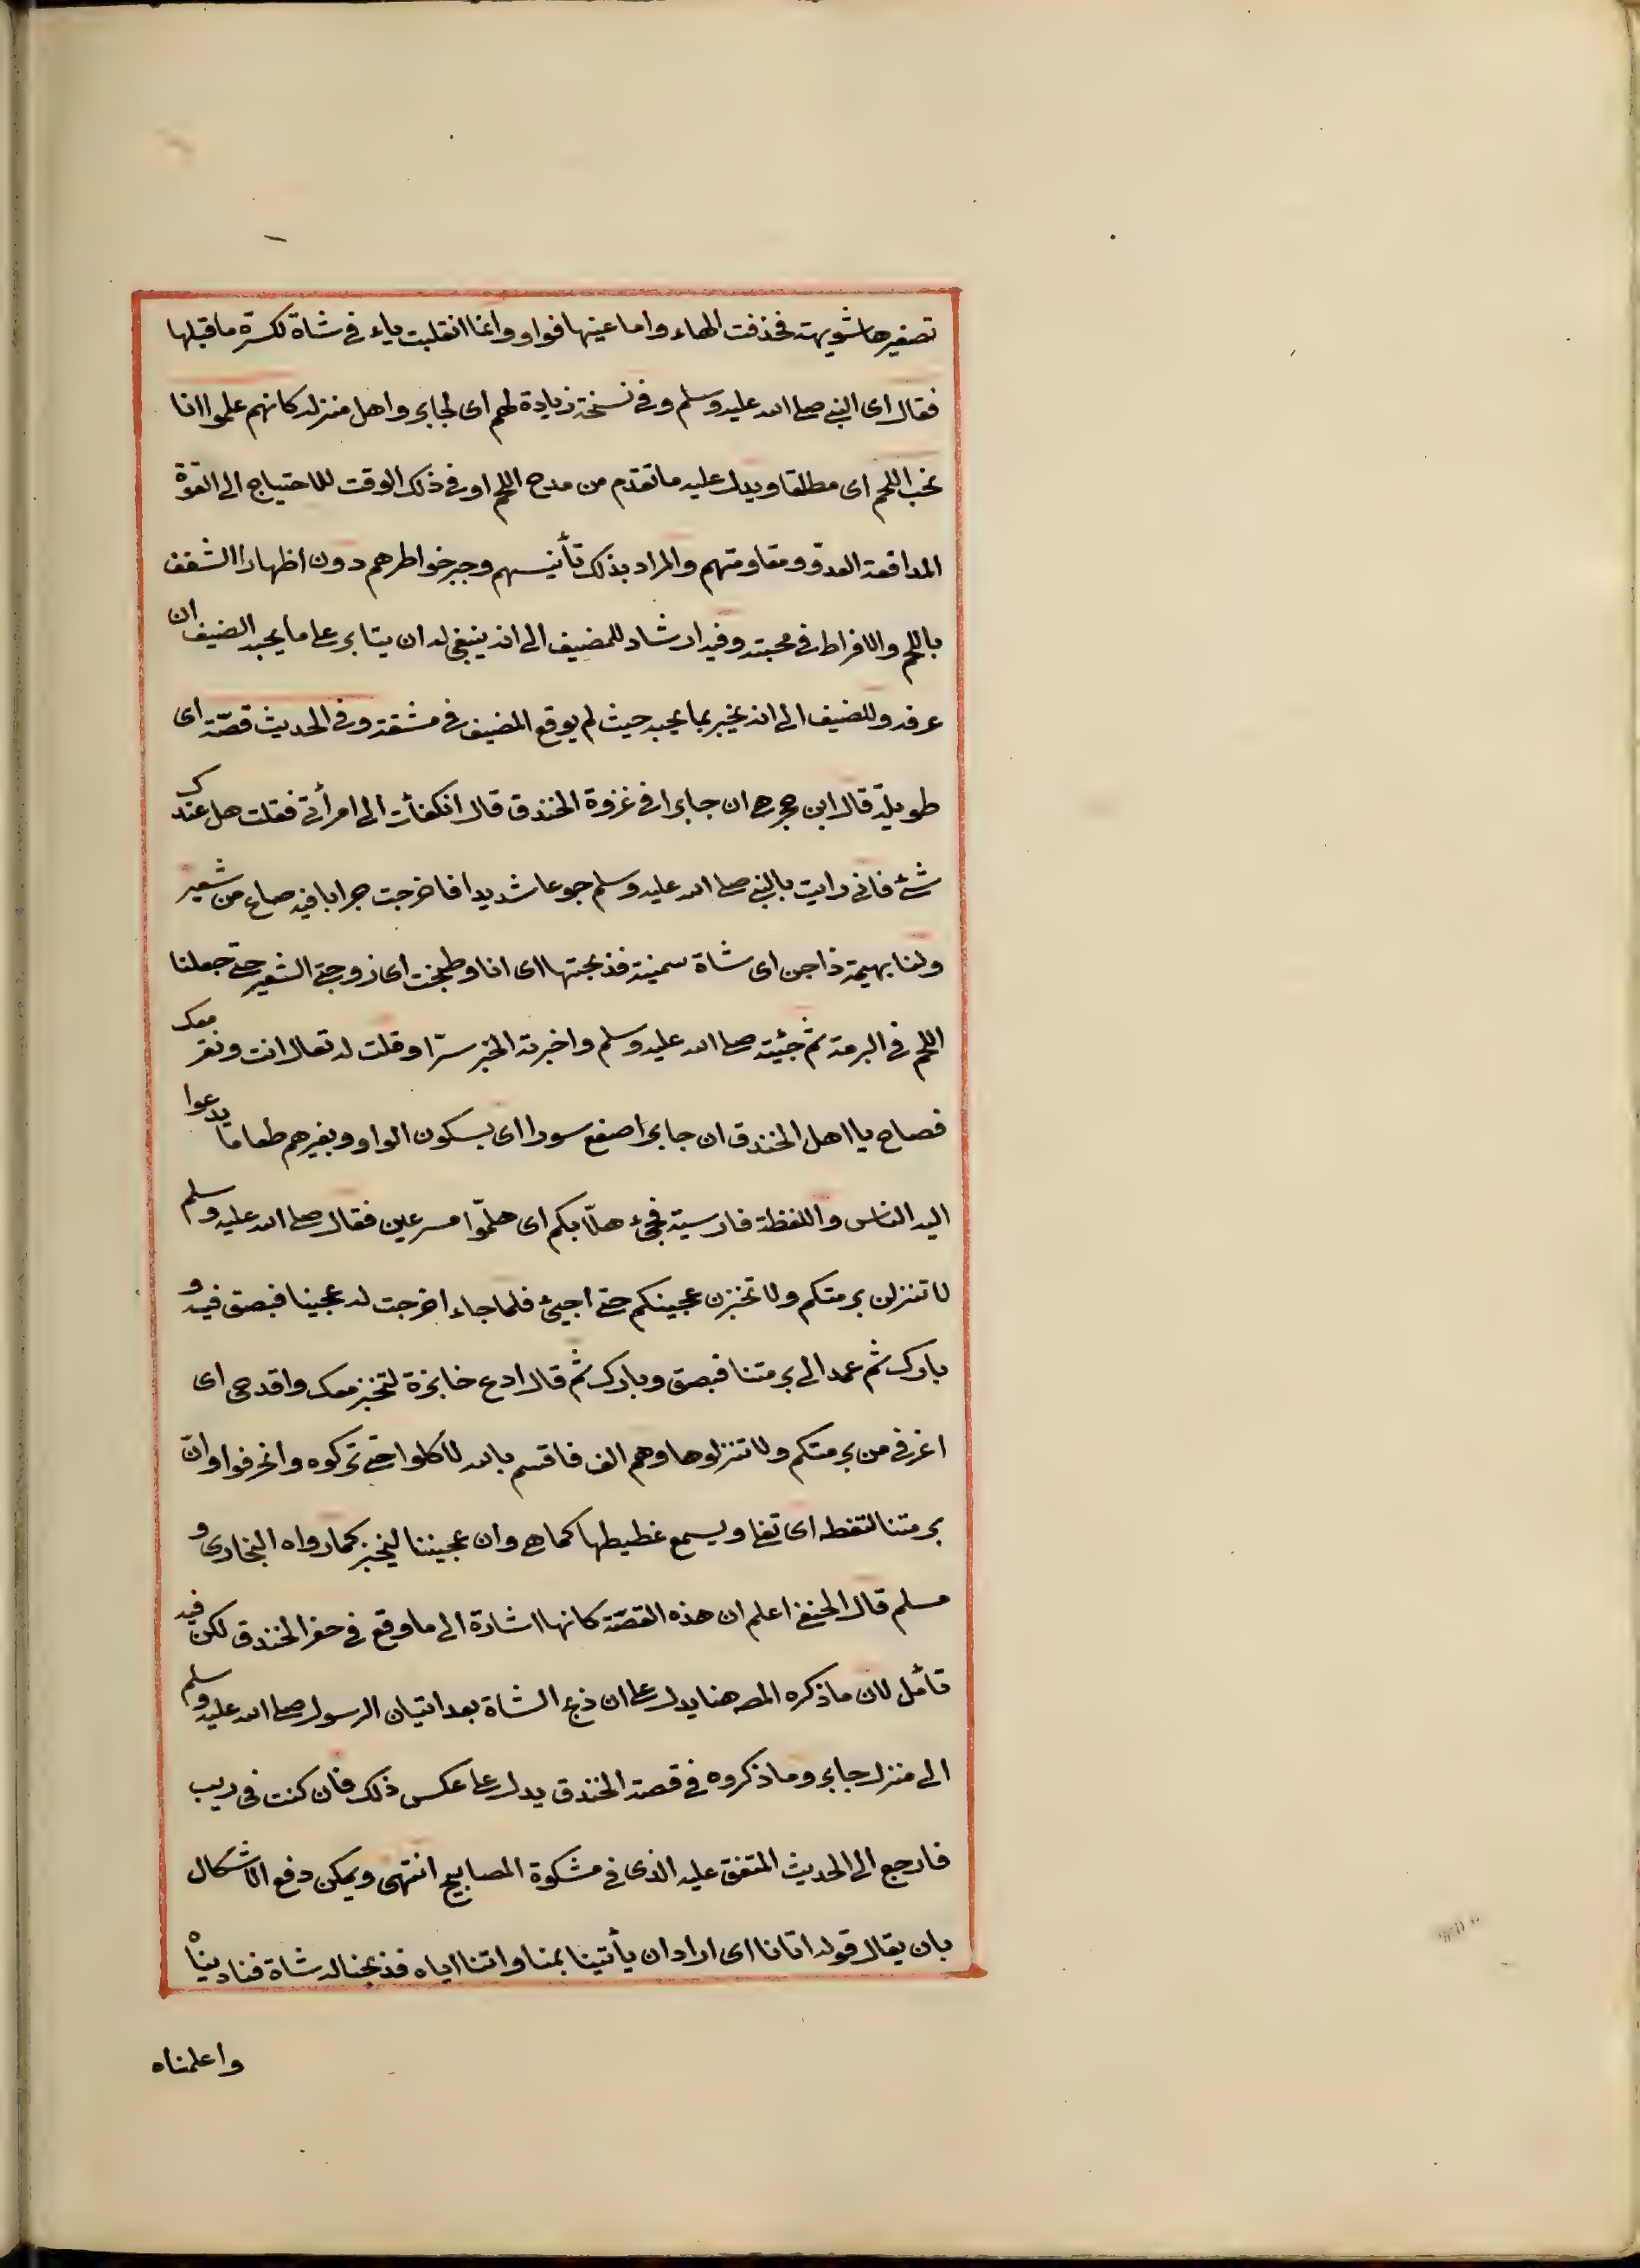 تصغيرها شويهة فحذفت الهاء واما عينها فواو وانما انقلبت ياء فى شاة لكسرة ما قبلها
فقال اى النبى صلى الله عليه وسلم وفى نسخة زيادة لهم اى لجابر واهل منزله كانهم علموا انا
نحب اللحم اى مطلقا ويدل عليه ما تقدم من مدح اللحم او فى ذلك الوقت للاحتياج الى القوة
المدافعة العدو ومقاومتهم والمراد بذلك تأنيسهم وجبر خواطرهم دون اظهار الشغف
باللحم والافراط فى محبته وفيه ارشاد للمضيف الى انه ينبغى له ان يثابر على ما يحبه الضيف ان
عرفه وللضيف الى انه يخبر بما يحبه حيث لم يوقع المضيف فى مشقة وفى الحديث قصّة اى
طويلة قال ابن حجر هى ان جابرا فى غزوة الخندق قال انكفأت الى امرأتى فقلت هل عندك
شئ فانى رايت بالنبى صلى الله عليه وسلم جوعا شديدا فاخرجت جرابا فيه صاع من شعير
ولنا بهيمة داجن اى شاة سمينة فذبحتها اى انا وطبخت اى زوجتى الشعير حتى جعلنا
اللحم فى البرمة ثم جئته صلى الله عليه وسلم واخبرته الخبر سرّا وقلت له تعال انت ونفر معك
فصاح يا اهل الخندق ان جابرا صنع سورا اى بسكون الواو وبغيرهم طعاما يدعوا
اليه الناس واللفظة فارسية فحى هلّا بكم اى هلمّوا مسرعين فقال صلى الله عليه وسلم
لا تنزلن برمتكم ولا تخبزن عجينكم حتى اجيئ فلما جاء اخرجت له عجينا فبصق فيه و
بارك ثم عمد الى برمتنا فبصق وبارك ثم قال ادع خابزة لتخبز معك واقدحى اى
اغرفى من برمتكم ولا تنزلوها وهم الف فاقسم بالله لأكلوا حتى تركوه وانحرفوا وان
برمتنا لتغط اى تغلى ويسمع غطيطها كما هى وان عجيننا ليخبز كما رواه البخارى و
مسلم قال الحنفى اعلم ان هذه القصّة كانها اشارة الى ما وقع فى حفر الخندق لكن فيه
تأمل لان ما ذكره المصـ هنا يدل على ان ذبح الشاة بعد اتيان الرسول صلى الله عليه وسلم
الى منزل جابر وما ذكروه فى قصة الخندق يدل على عكس ذلك فان كنت فى ريب
فارجع الى الحديث المتفق عليه الذى فى مشكوة المصابيح انتهى ويمكن دفع الاشكال
بان يقال قوله اتانا اى اراد ان يأتينا بمنا واتنا اياه فذبحنا له شاة فناديناه
واعلمناه